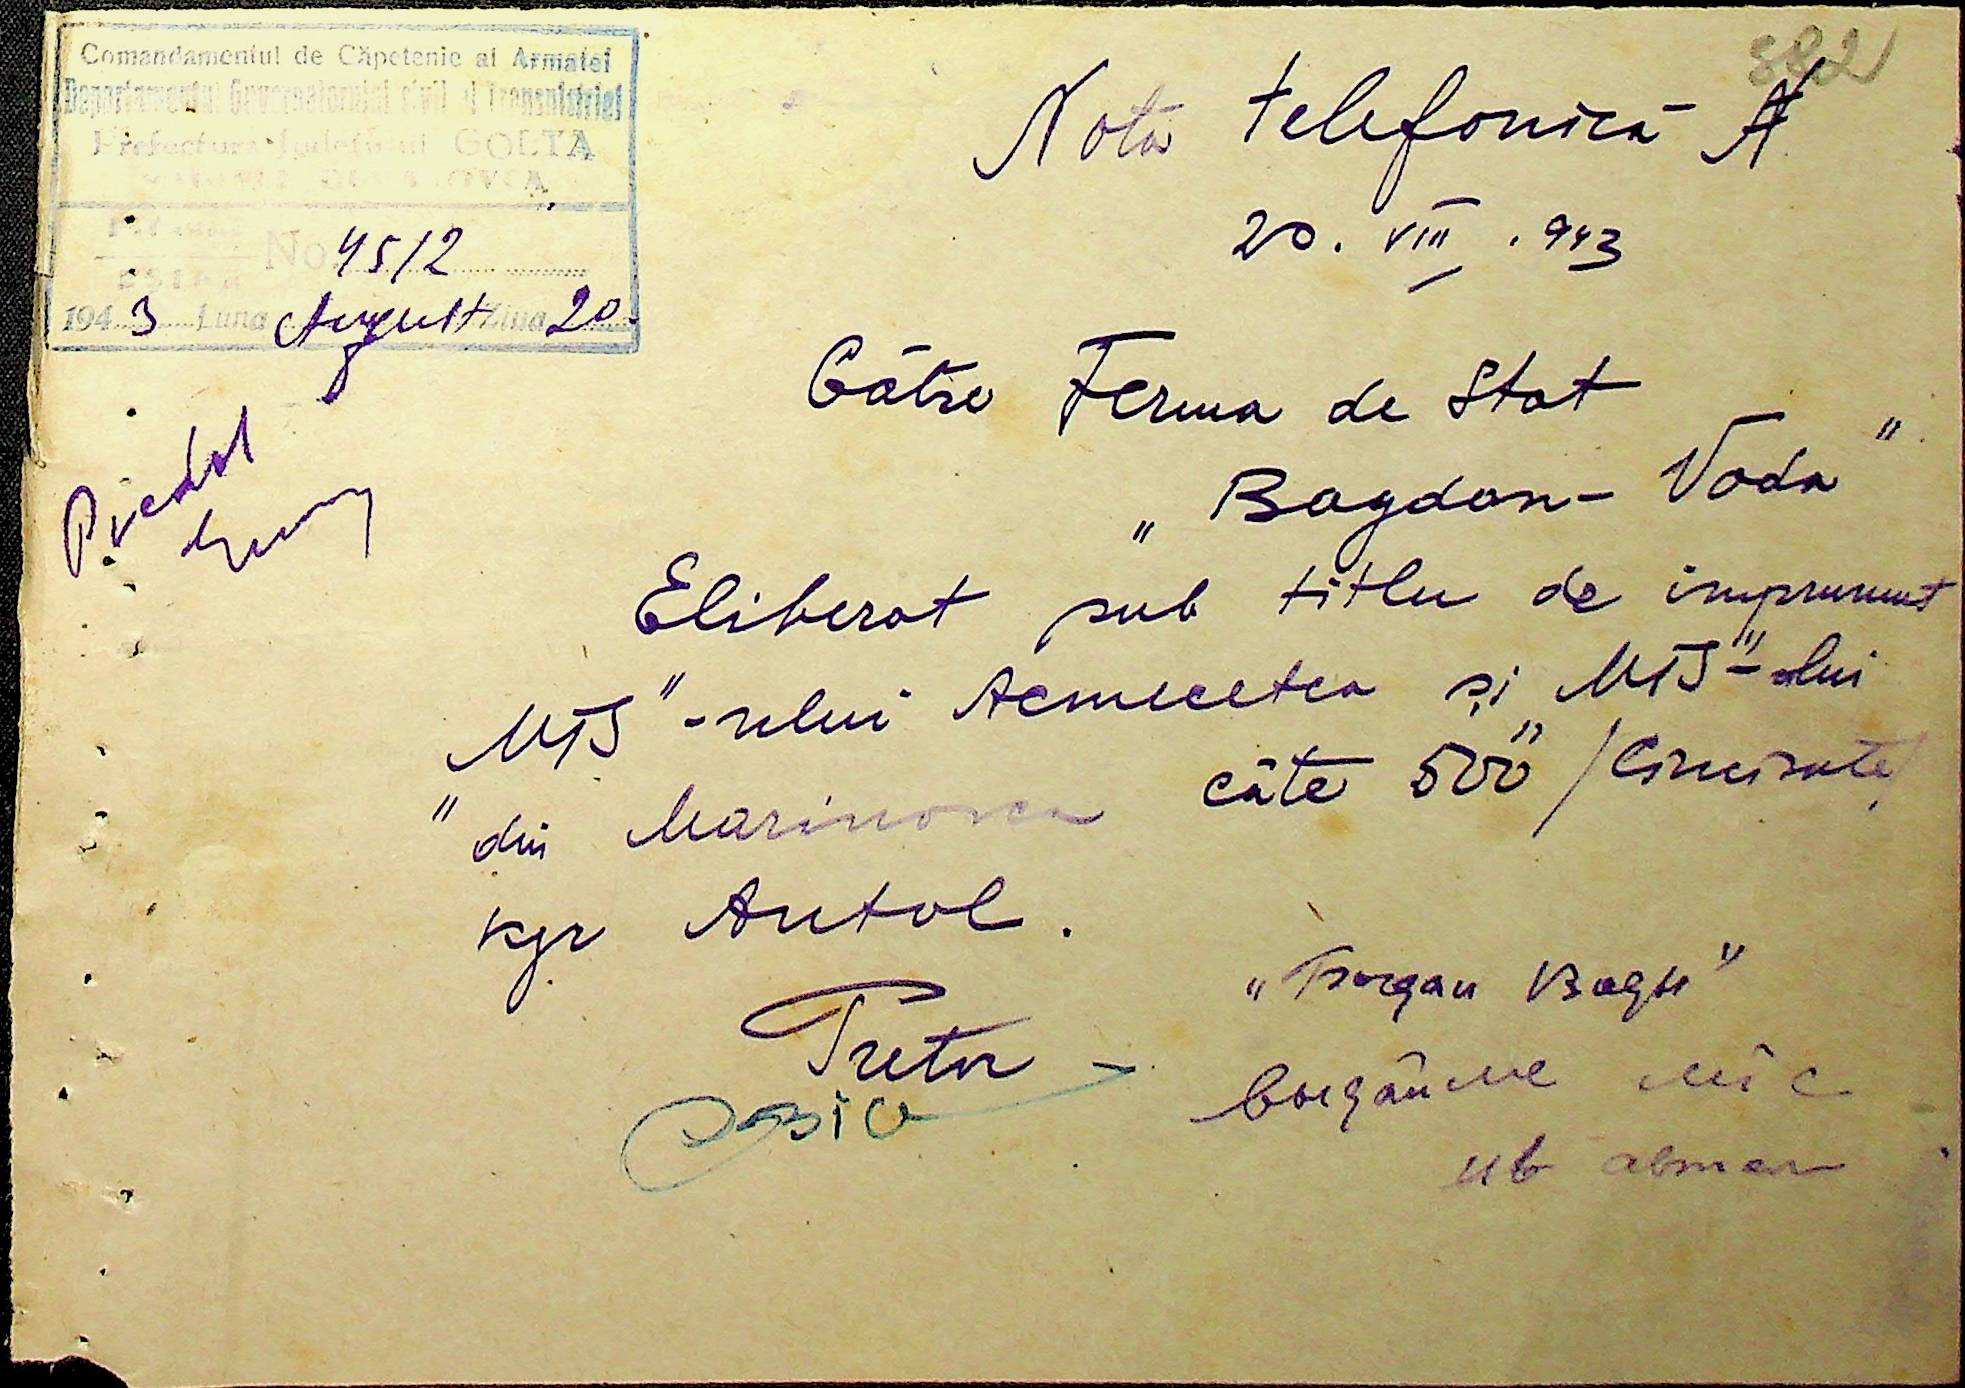 382
Comandamentul de Căpetenie al Armatei
Departamentul Guvernamântului civil al Transnistriei
Prefectura Județului GOLTA
No. 4512
1943 Luna August Ziua 20.
Notă telefonică
20. VIII. 943
Către Ferma de Stat
„Bogdan-Voda"
Eliberat sub titlu de imprumut
MTS"-ului Acmecetca și MTS"-ului
" din Marinovca câte 500 /Cincisute/
kgr Autol.
Pretor -